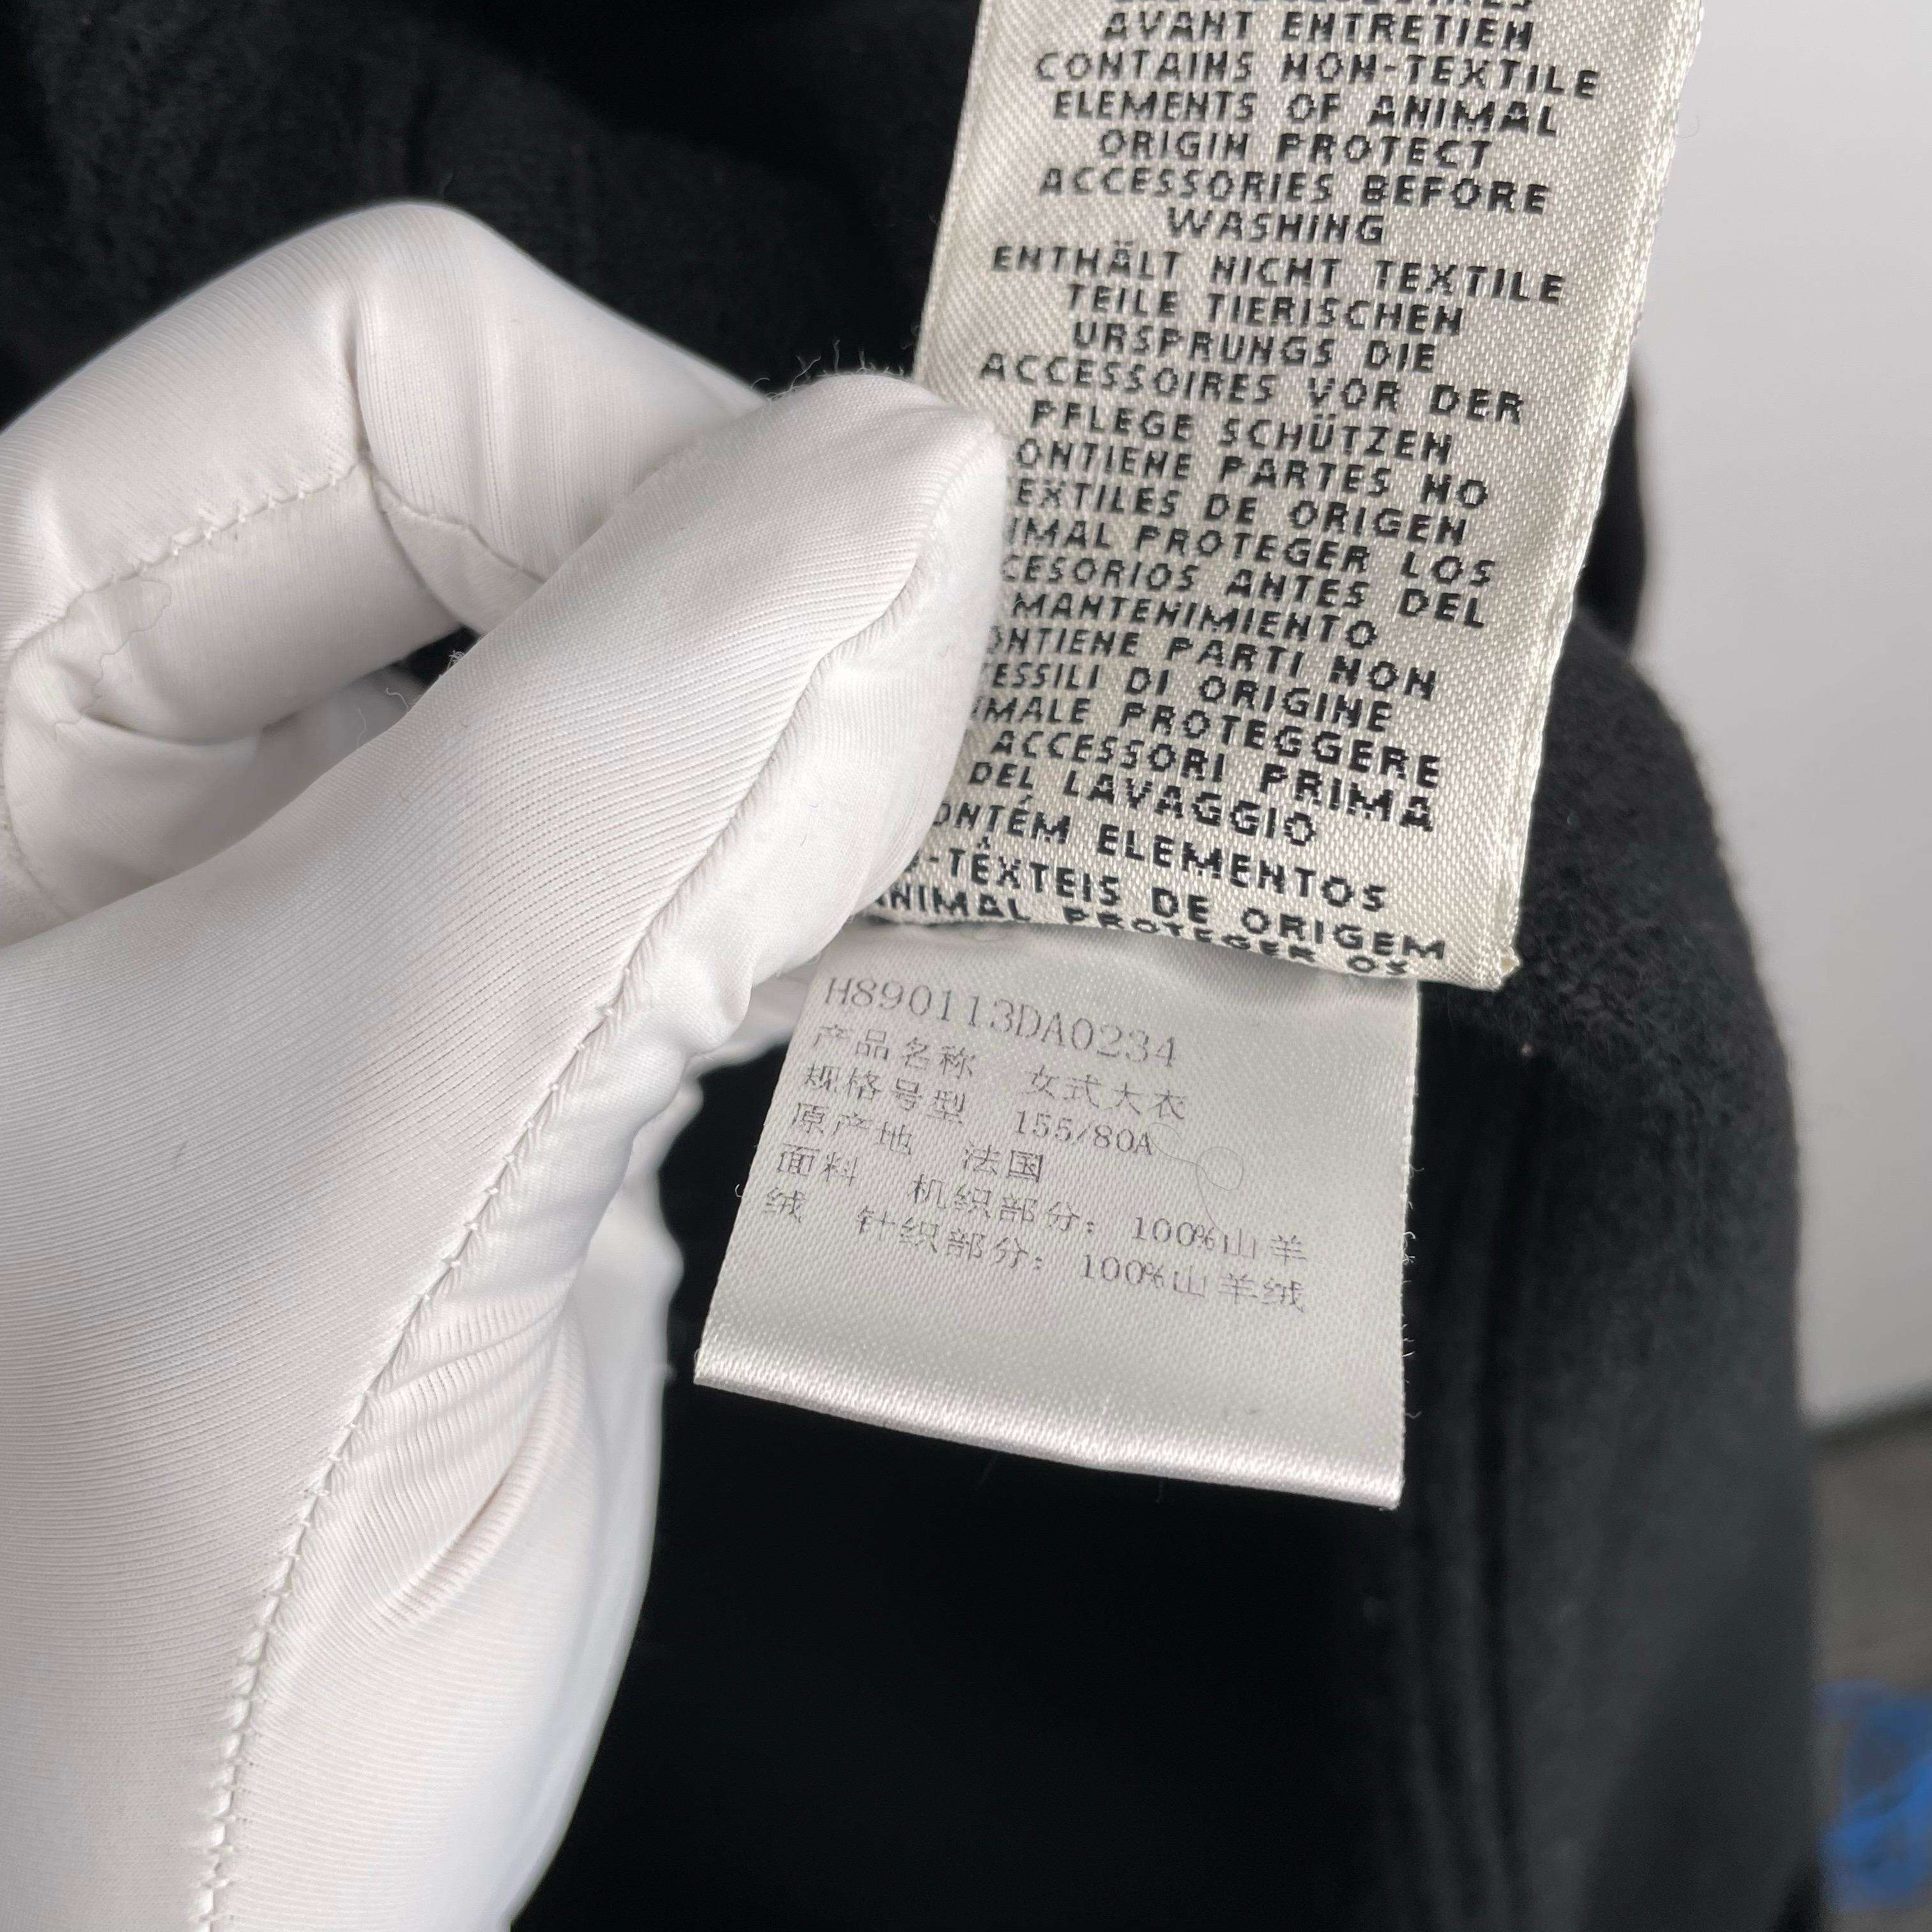 AVANT ENTRETIEN
CONTAINS NON-TEXTILE
ELEMENTS OF ANIMAL
ORIGIN PROTECT
ACCESSORIES BEFORE
WASHING
ENTHÄLT NICHT TEXTILE
TEILE TIERISCHEN
URSPRUNGS DIE
ACCESSOIRES VOR DER
PFLEGE SCHÜTZEN
ONTIENE PARTES NO
EXTILES DE ORIGEN
IMAL PROTEGER LOS
CESORIOS ANTES DEL
MANTENIMIENTO
ONTIENE PARTI NON
ESSILI DI ORIGINE
IMALE PROTEGGERE
ACCESSORI PRIMA
DEL LAVAGGIO
ONTÉM ELEMENTOS
-TÊXTEIS DE ORIGEM
ANIMAL PROTEGER OS
H890113DA0234
产品名称 女式大衣
规格号型 155/80A
原产地 法国
面料 机织部分：100%山羊
绒 针织部分：100%山羊绒